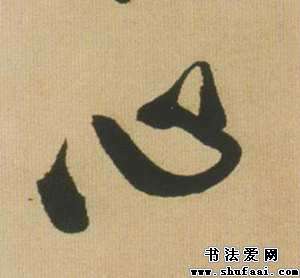 心
书法爱网
www.shufaai.com